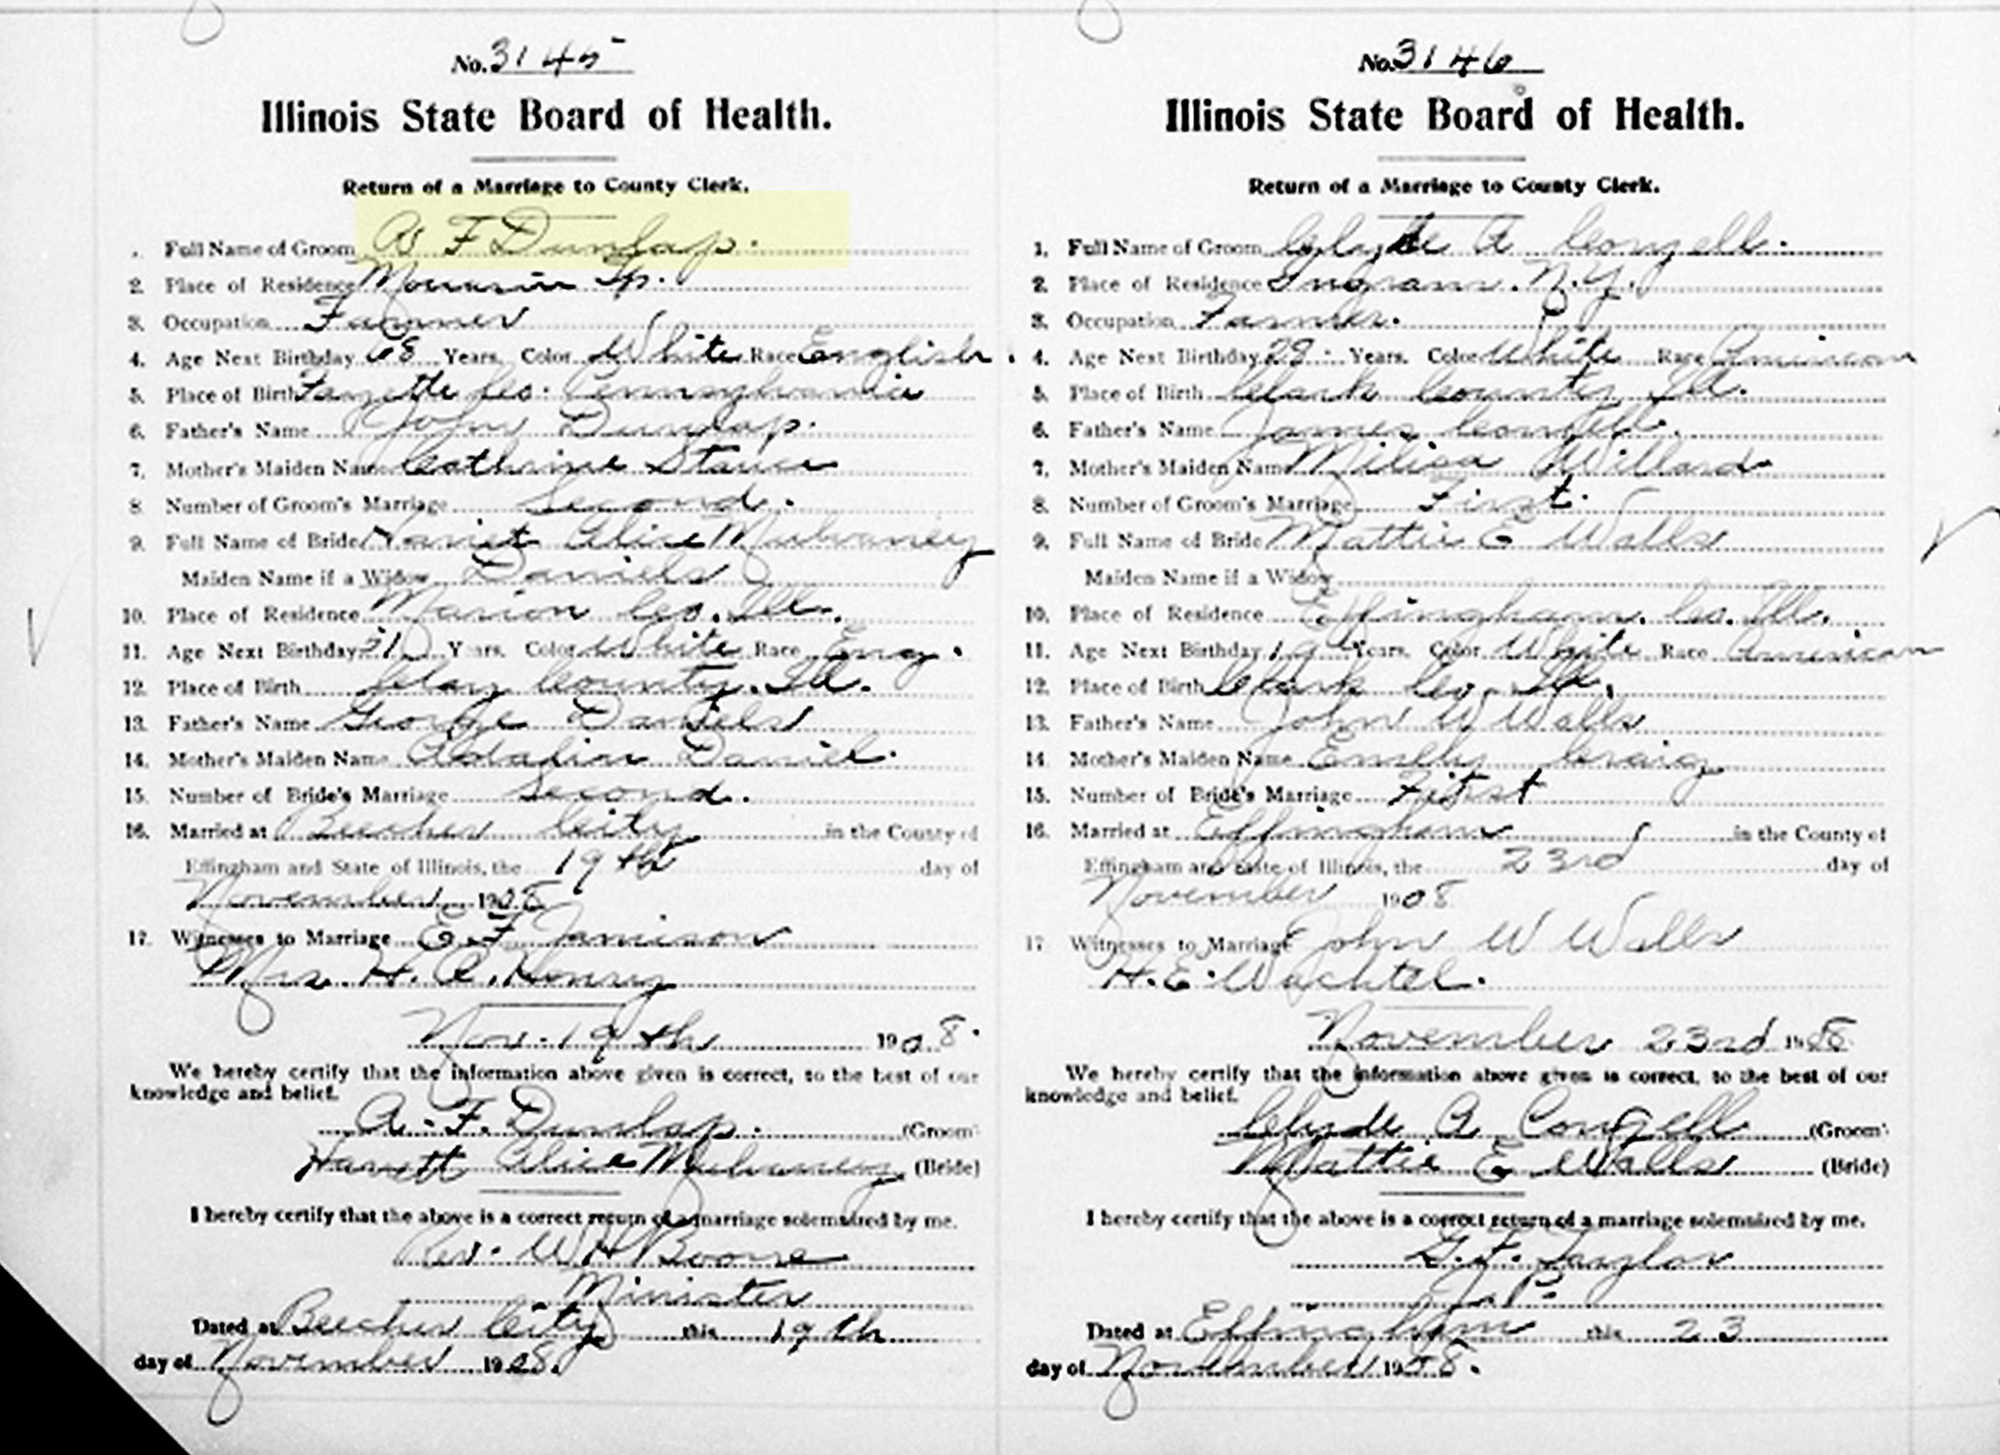 No. 3145
Illinois State Board of Health.
Return of a Marriage to County Clerk.
Full Name of Groom A F Dunlap.
2. Place of Residence Tp.
3. Occupation Farmer
4. Age Next Birthday 68 Years, Color White Race English.
5. Place of Birth Fayette Co. Pennsylvania
6. Father's Name John Dunlap.
7. Mother's Maiden Name Cathrine
8. Number of Groom's Marriage Second.
9. Full Name of Bride Hariet Alice Mulvaney
Maiden Name if a Widow Daniels
10. Place of Residence Marion Co. Ill.
11. Age Next Birthday Years, Color White Race Eng.
12. Place of Birth Clay County. Ill.
13. Father's Name George Daniels
14. Mother's Maiden Name Daniel.
15. Number of Bride's Marriage Second.
16. Married at Beecher City in the County of
Effingham and State of Illinois, the 19th day of
November 1908
17. Witnesses to Marriage E. F. Jamison
Mrs. H. A. Henry
Nov. 19th 1908.
We hereby certify that the information above given is correct, to the best of our
knowledge and belief.
A. F. Dunlap. (Groom)
Harett Alice Mulvaney (Bride)
I hereby certify that the above is a correct return of a marriage solemnized by me.
Rev. W H Boone
Minister
Dated at Beecher City this 19th
day of November 1908.
No. 3146
Illinois State Board of Health.
Return of a Marriage to County Clerk.
1. Full Name of Groom Clyde A Congell.
2. Place of Residence Ingram. N.Y.
3. Occupation Farmer.
4. Age Next Birthday 28 Years, Color White Race American
5. Place of Birth Clark County Ill.
6. Father's Name James Congell.
7. Mother's Maiden Name Milisa Willard
8. Number of Groom's Marriage First.
9. Full Name of Bride Mattie E Walls
Maiden Name if a Widow
10. Place of Residence Effingham. Co. Ill.
11. Age Next Birthday 19 Years, Color White Race American
12. Place of Birth Clark Co. Ill.
13. Father's Name John W Walls
14. Mother's Maiden Name Emely Craig
15. Number of Bride's Marriage First
16. Married at Effingham in the County of
Effingham and State of Illinois, the 23rd day of
November 1908
17 Witnesses to Marriage John W Walls
H. E. Wachtel.
November 23rd 1908
We hereby certify that the information above given is correct, to the best of our
knowledge and belief.
Clyde A Congell (Groom)
Mattie E Walls (Bride)
I hereby certify that the above is a correct return of a marriage solemnized by me.
G. F. Taylor
J. P.
Dated at Effingham this 23
day of November 1908.